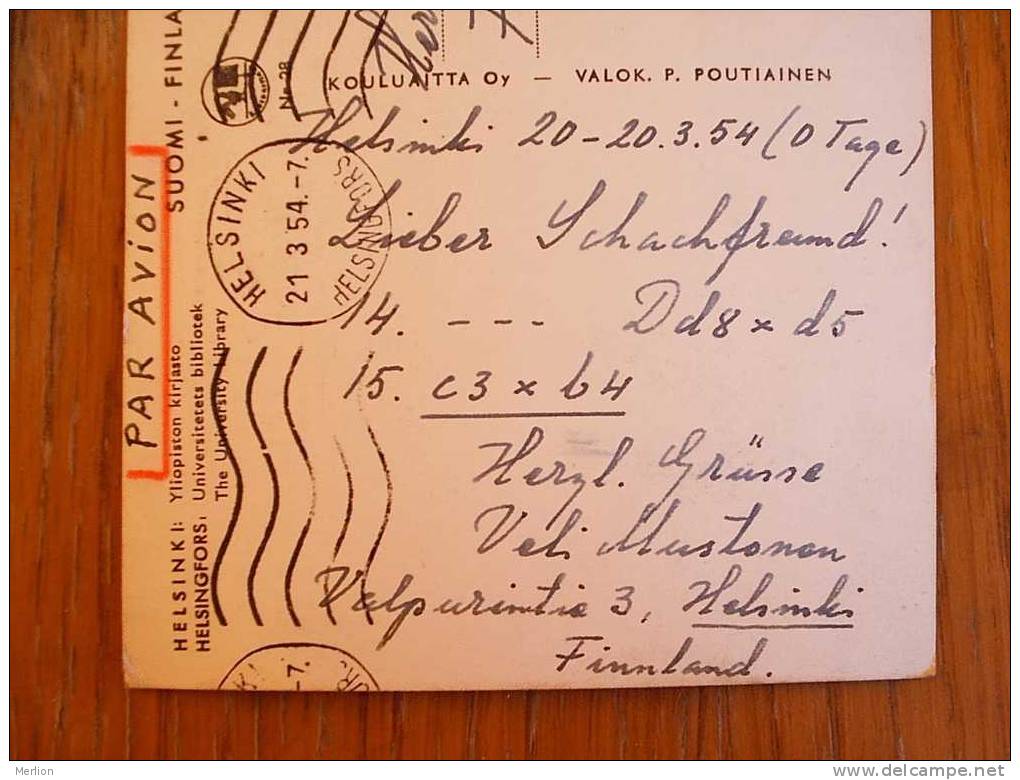 KOULUAITTA Oy — VALOK. P. POUTIAINEN
Helsinki 20-20.3.54 (0 Tage)
Lieber Schachfreund!
14. --- Dd8 x d5
15. c3 x b4
Herzl. Grüsse
Veli Mustonen
Valpurintie 3, Helsinki
Finnland.
PAR AVION
SUOMI - FINLA
No 28
HELSINKI: Yliopiston kirjasto
HELSINGFORS: Universitetets bibliotek
The University Library
HELSINKI
21 3 54.-7.
HELSINGFORS
KI
-7.
OR
Merlion
delcampe.net